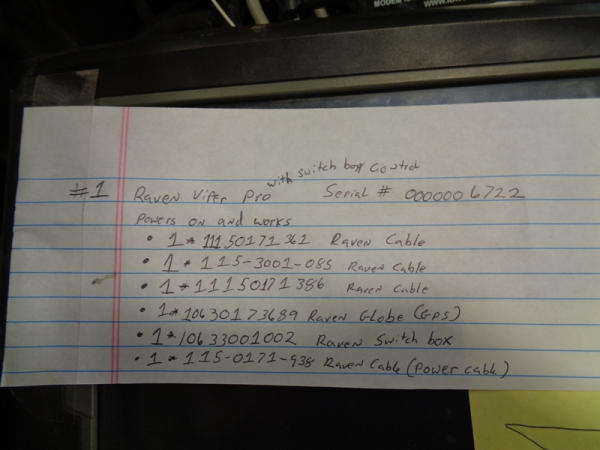 MODEL N
WWW.RA
with switch box control
#1 Raven Viper Pro Serial # 0000006722
Powers on and works
• 1 * 11150171361 Raven Cable
• 1 * 115-3001-085 Raven Cable
• 1 * 11150171386 Raven Cable
• 1 * 10630173689 Raven Globe (GPS)
• 1 * 10633001002 Raven Switch box
• 1 * 115-0171-938 Raven Cable (Power cable)